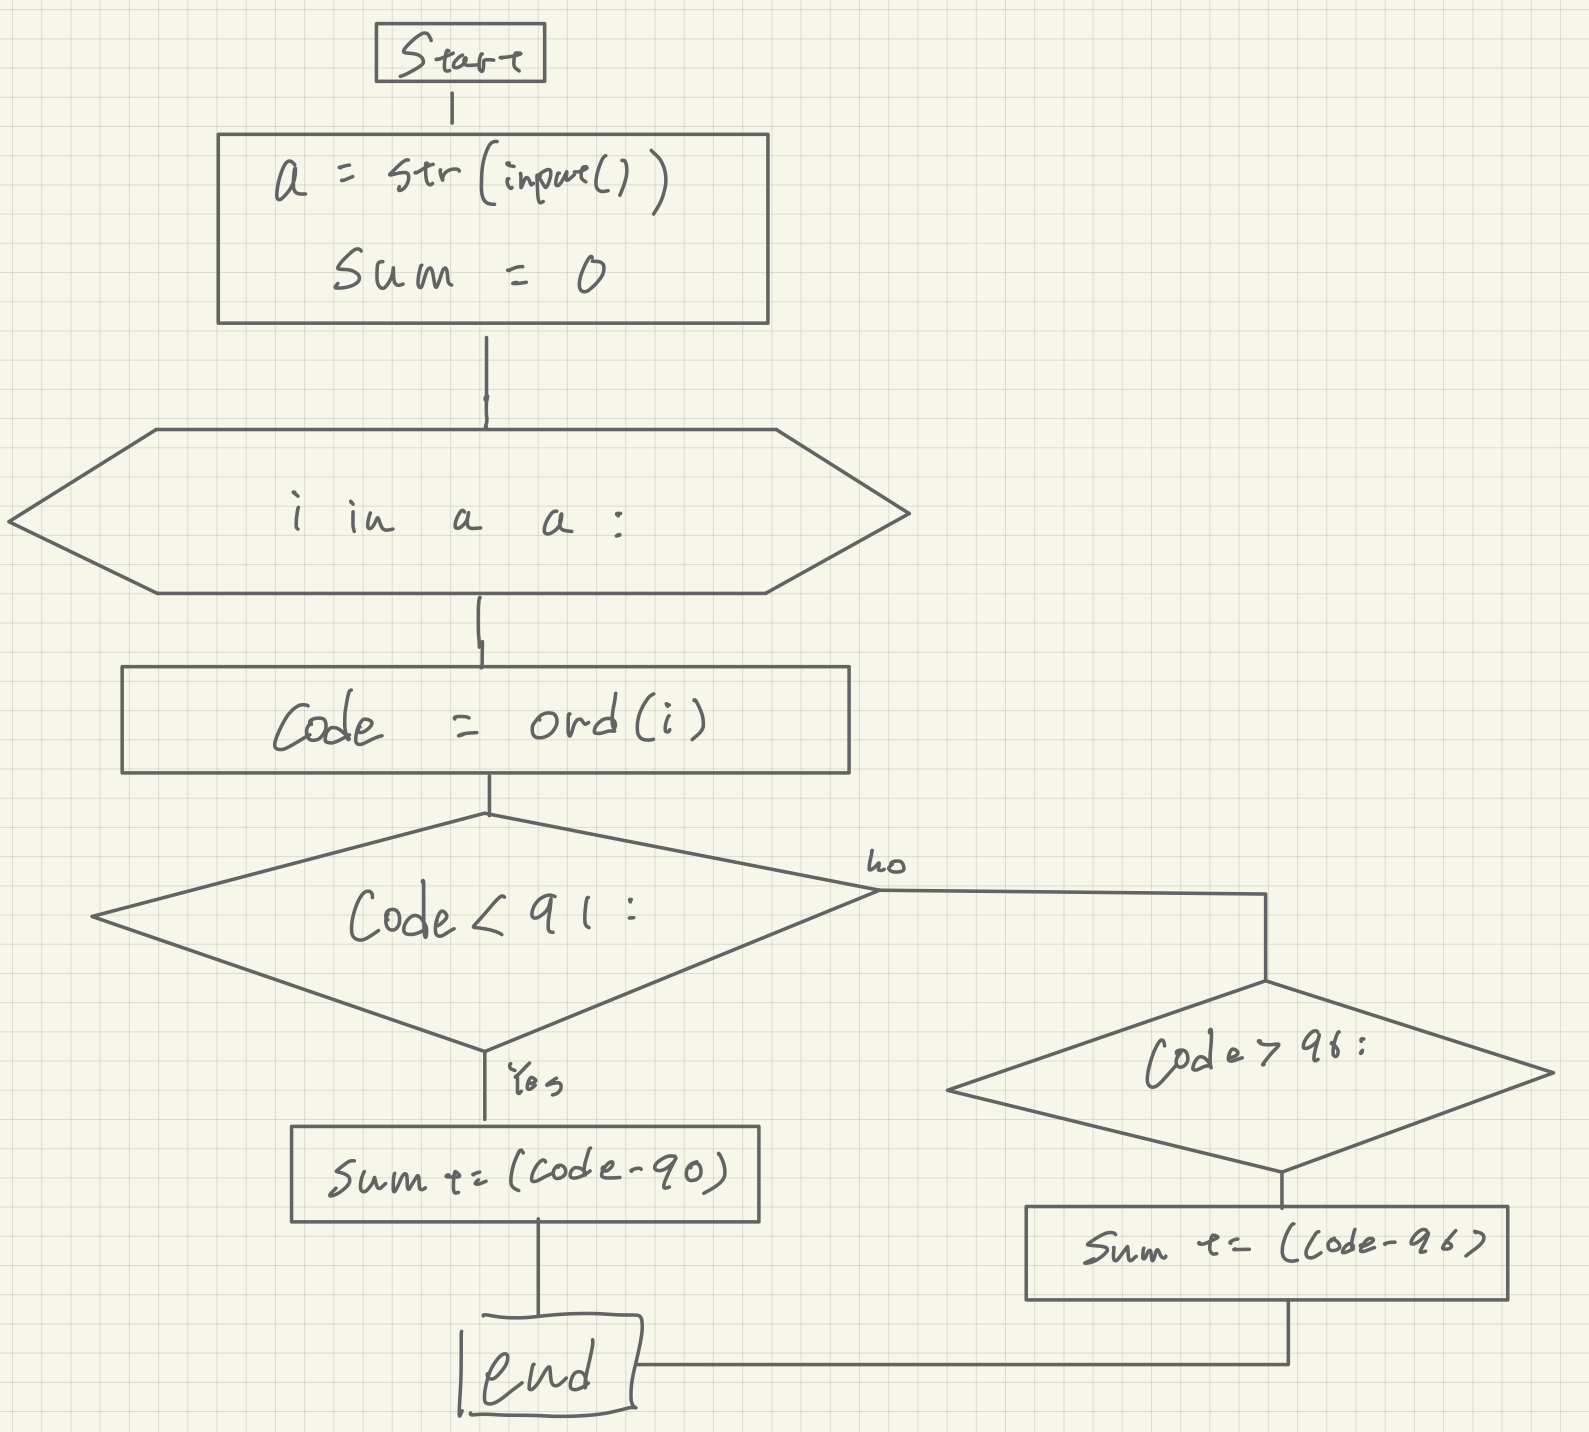 Start
a = str(input())
Sum = 0
i in a a :
Code = ord(i)
Code < 91 :
no
Yes
Code > 96 :
Sum += (Code-90)
Sum += (Code-96)
end